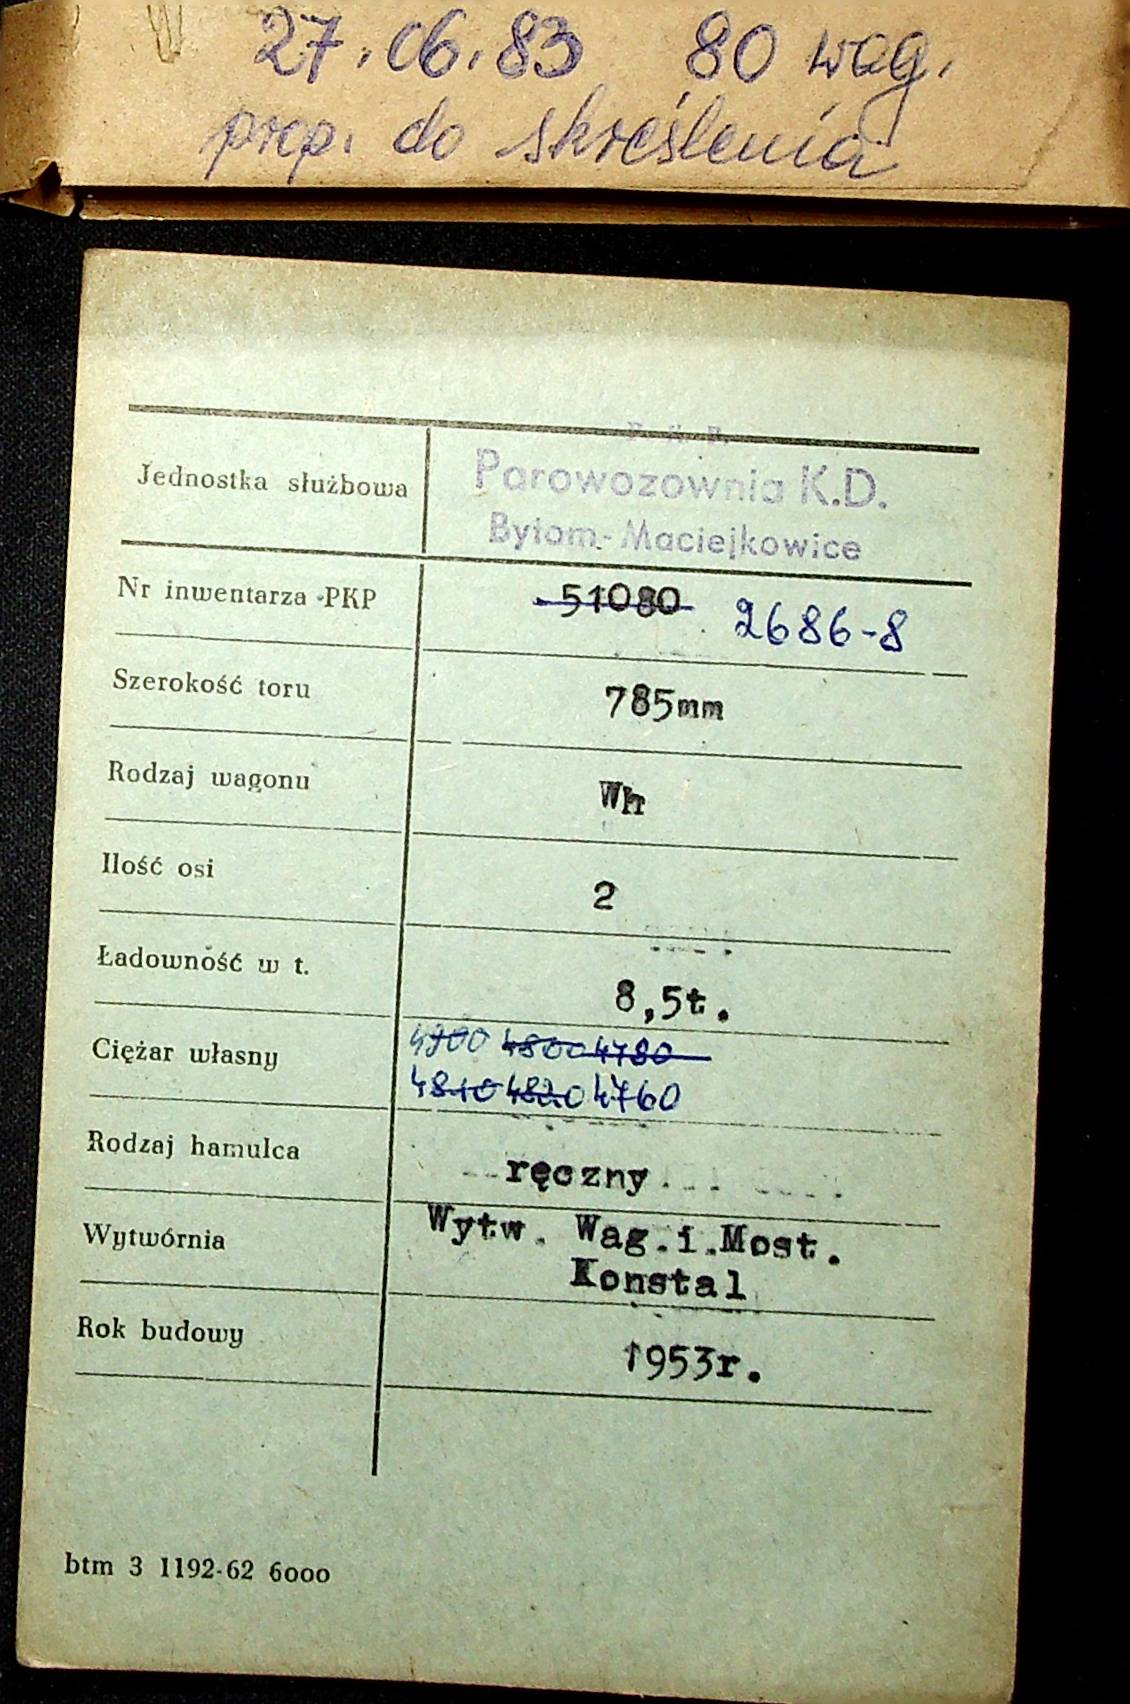 27.06.83 80 wag.
prop. do skreślenia
P. K. P.
Jednostka służbowa Parowozownia K.D.
Bytom-Maciejkowice
Nr inwentarza PKP 51080 2686-8
Szerokość toru 785mm
Rodzaj wagonu Wh
Ilość osi 2
Ładowność w t. 8,5t.
Ciężar własny 4900 4800 4780
4810 4820 4760
Rodzaj hamulca ręczny
Wytwórnia Wytw. Wag.i.Most.
Konstal
Rok budowy 1953r.
btm 3 1192-62 6000